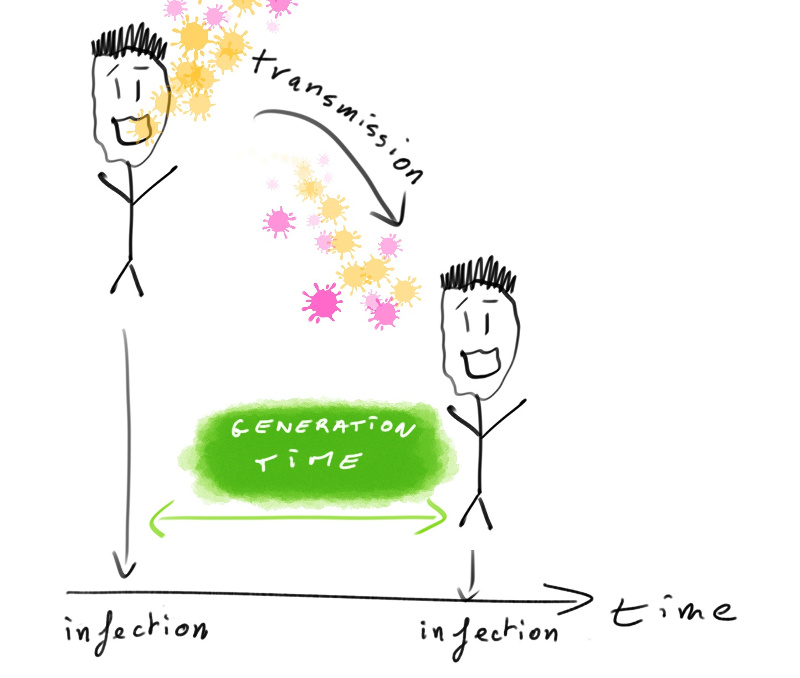 transmission
GENERATION
TiME
time
infection
infection